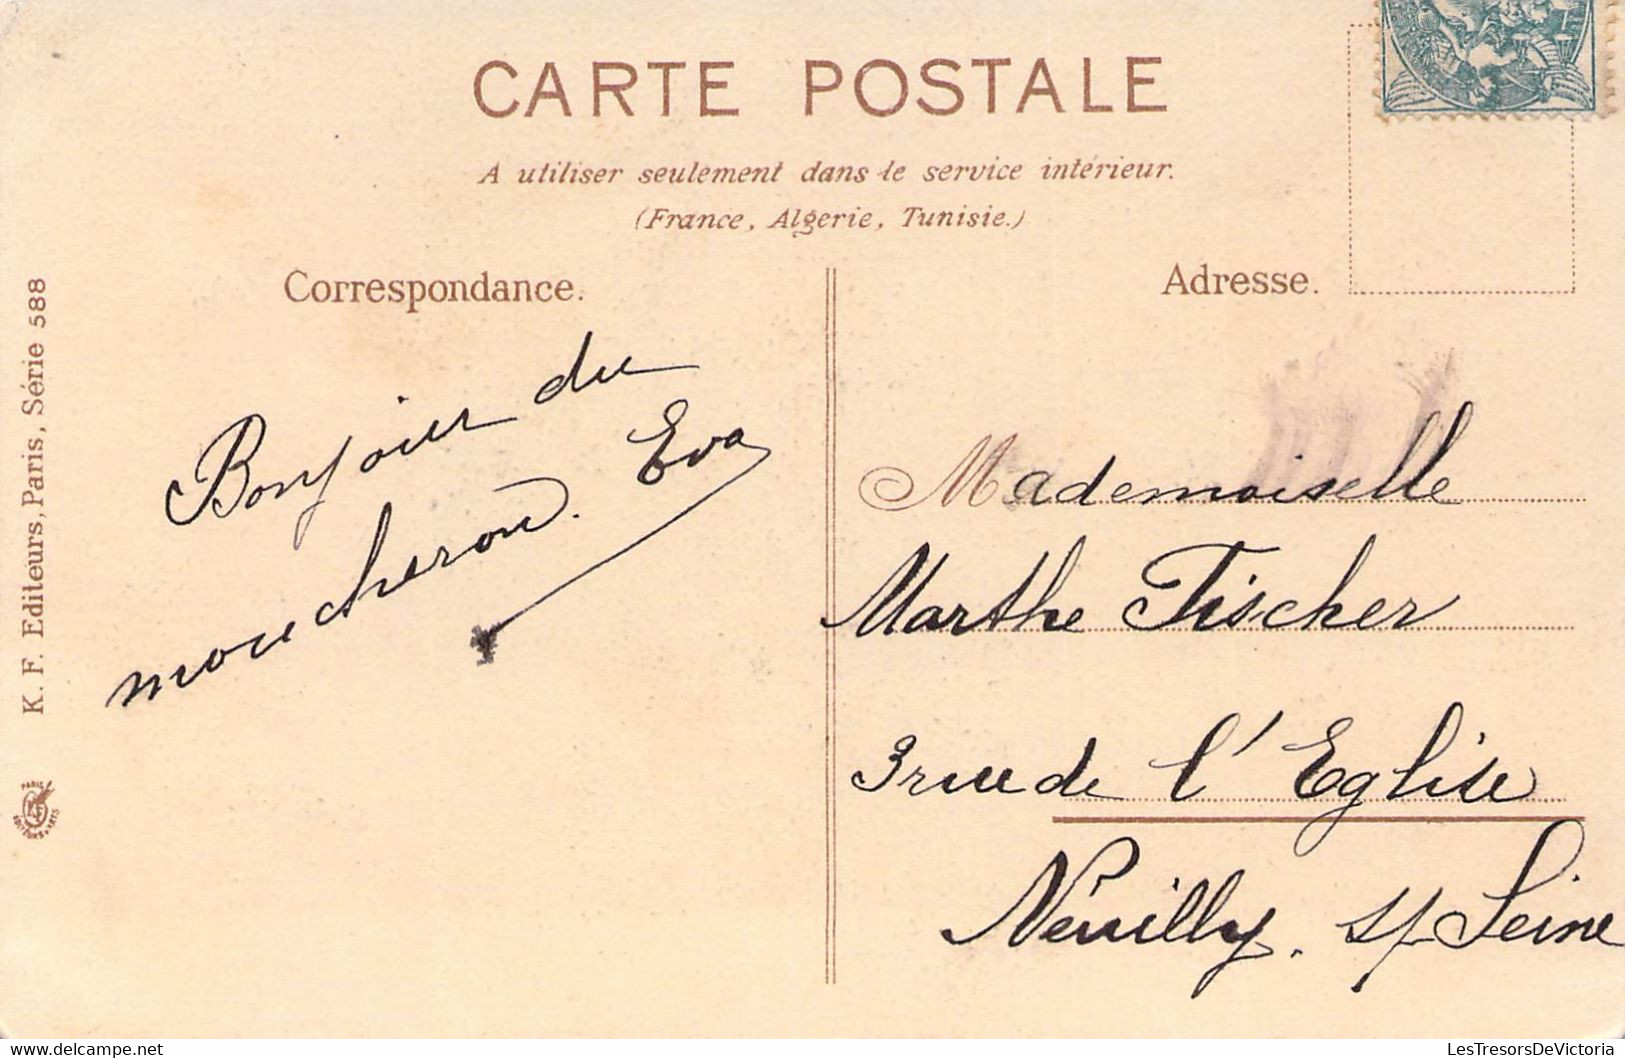 CARTE POSTALE
A utiliser seulement dans le service intérieur.
(France, Algerie, Tunisie.)
Correspondance.
Adresse.
Bonjour du
moucheron. Eva
Mademoiselle
Marthe Fischer
3 rue de l'Eglise
Neuilly. s/ Seine
K. F. Editeurs, Paris, Série 588
PARIS
LesTresorsDeVictoria